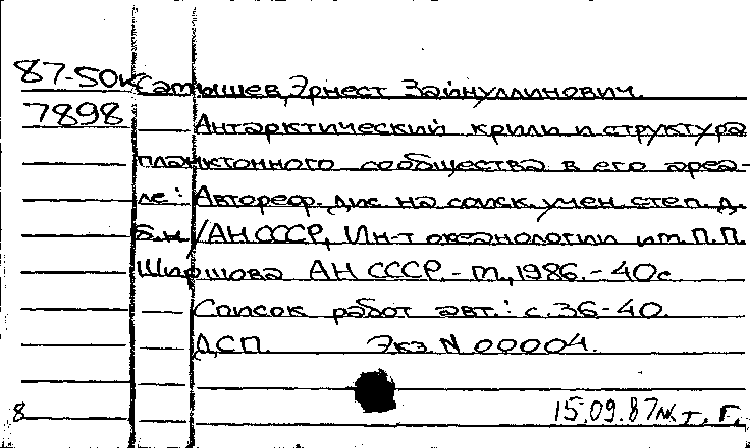 87-50к Самышев, Эрнест Зайнуллинович.
7898 Антарктический криль и структура
планктонного сообщества в его ареа-
ле: Автореф. дис. на соиск. учен. степ. д.
б.н. / АН СССР, Ин-т океанологии им. П.П.
Ширшова АН СССР. - М., 1986. - 40с.
Список работ авт.: с. 36-40.
ДСП. Экз. N 00004.
8 15.09.87 т. Г.